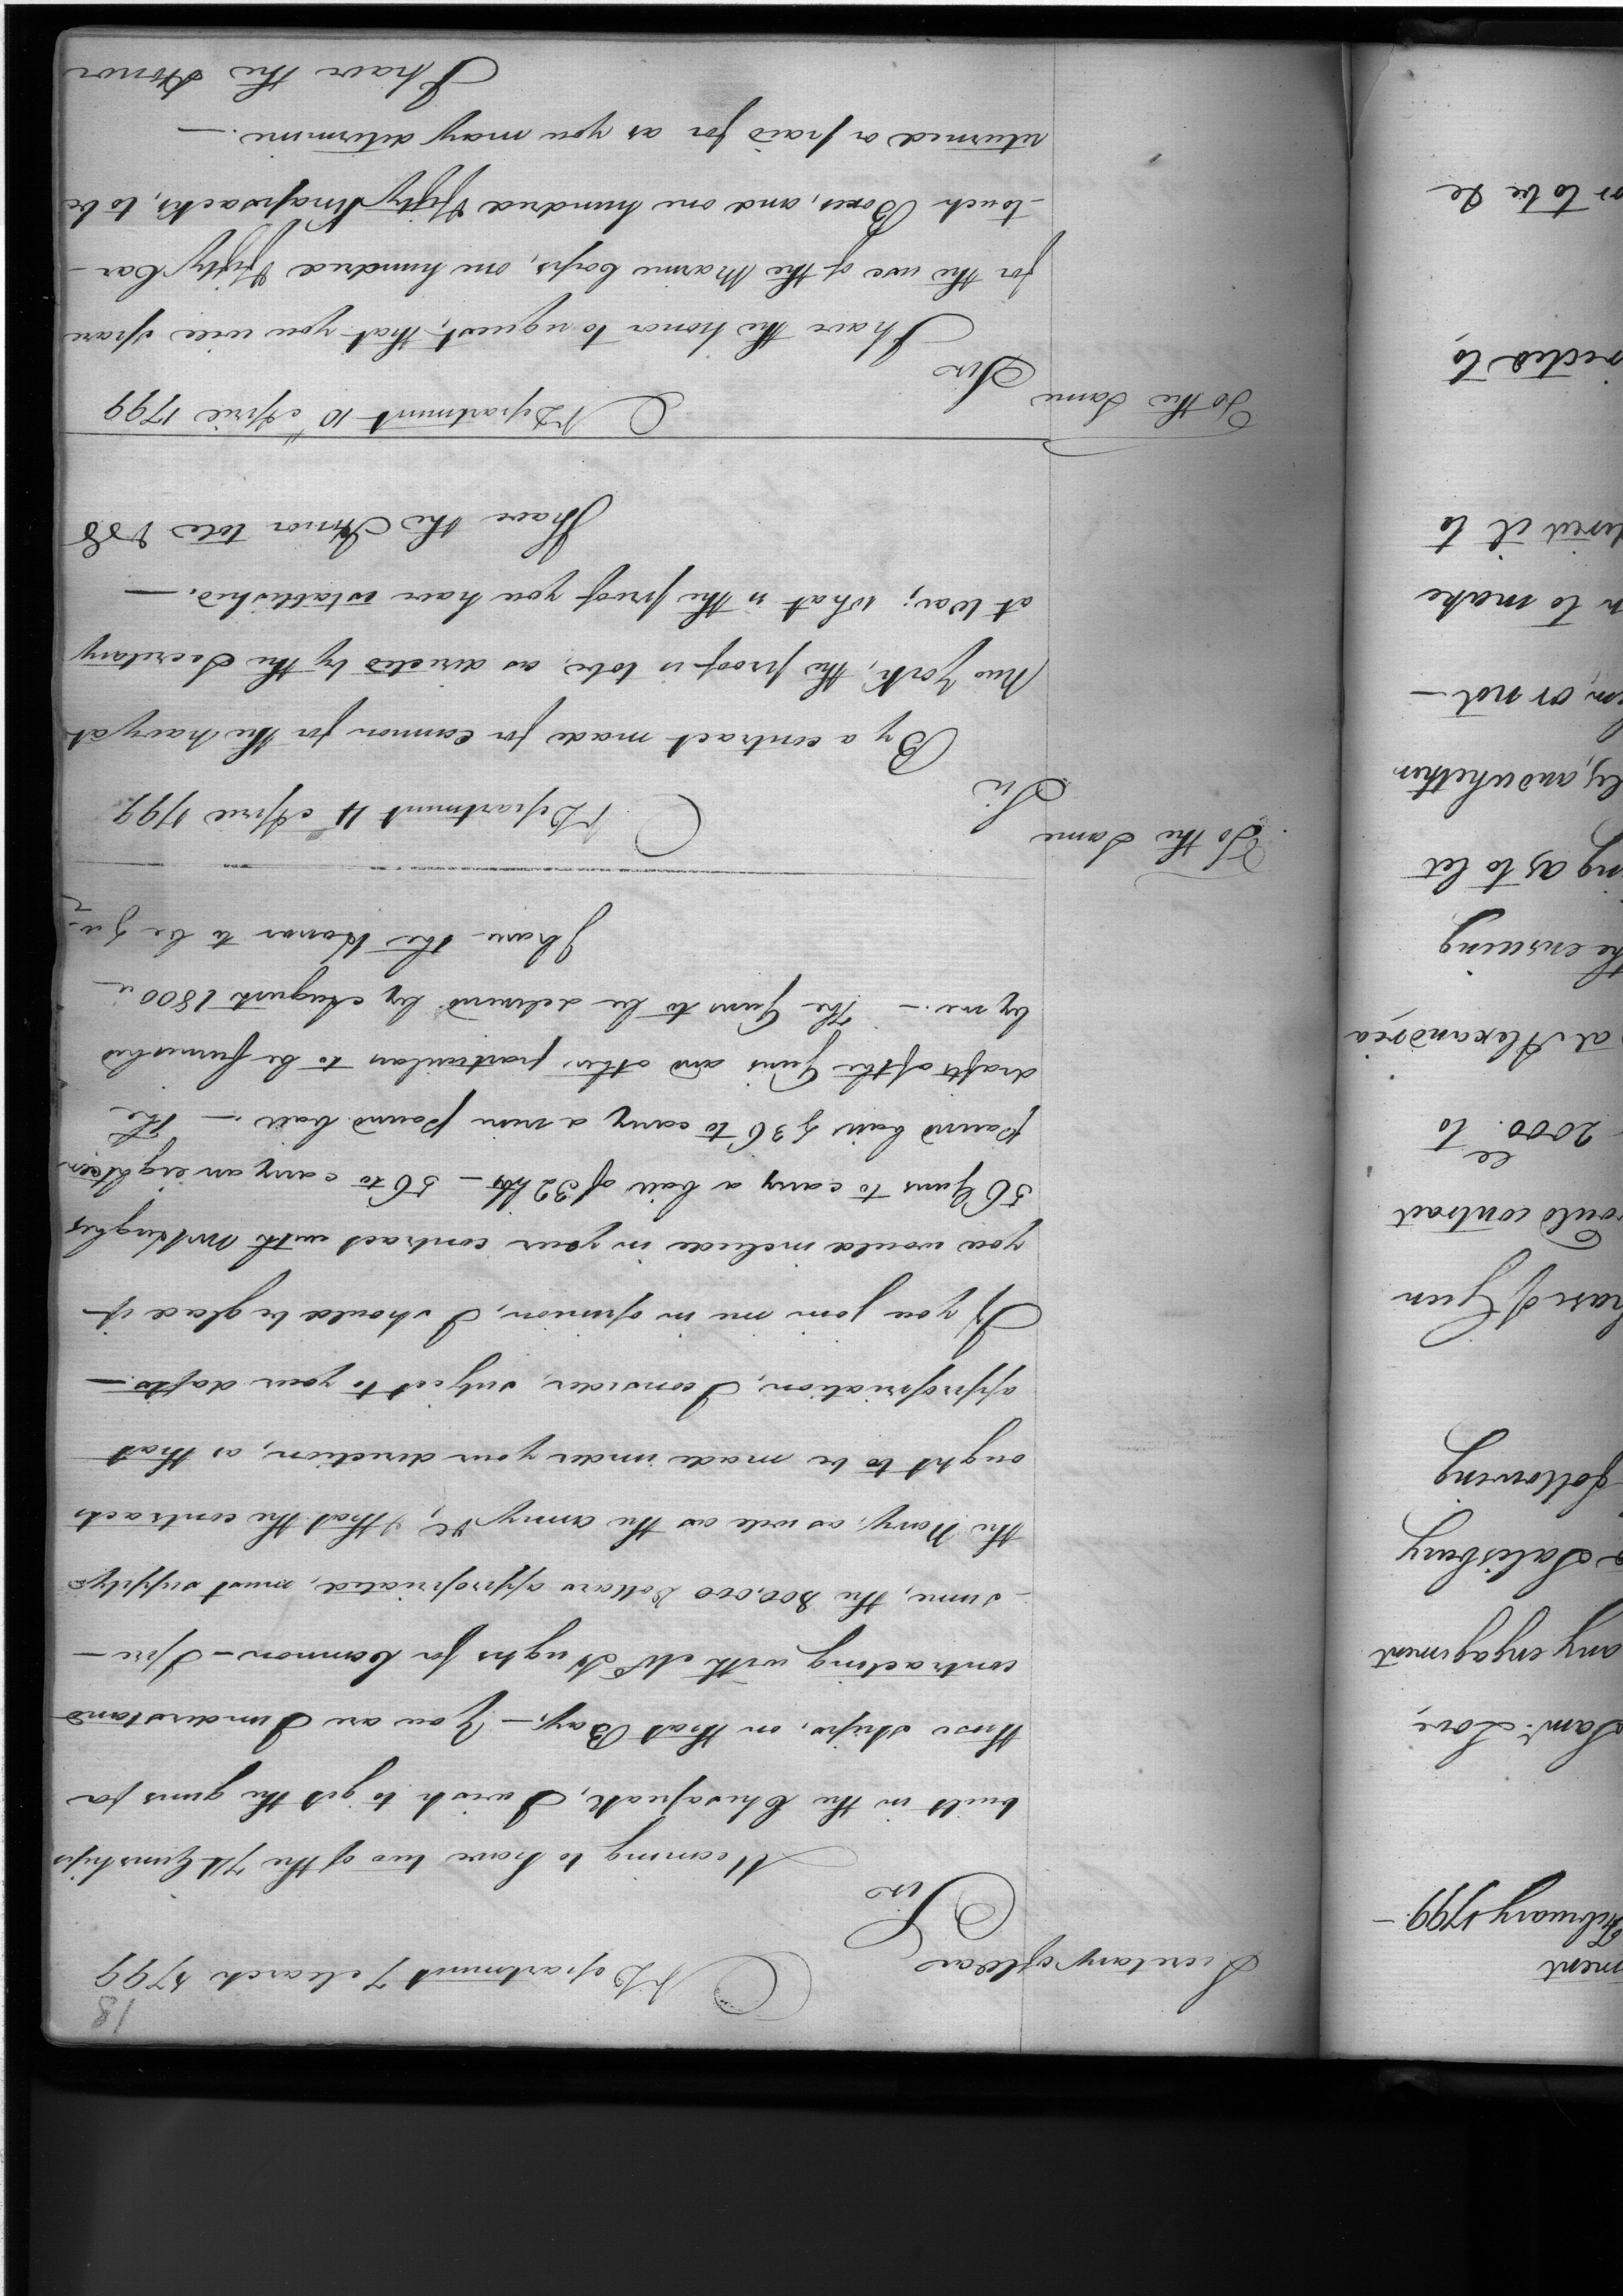 18
N Department 7 March 1799
Secretary of War
Sir
Meaning to have two of the 74 Gun ships
built in the Chesapeak, I wish to get the guns for
those ships, on that Bay. — You are I understand
contracting with Mr Hughs for Cannon — I pre-
-sume, the 800,000 Dollars appropriated, must supply
the Navy, as well as the army &c, & that the contracts
ought to be made under your direction, as that
appropriation, I consider, subject to your drafts. —
If you join me in opinion, I should be glad if
you would include in your contract with Mr Hughes
56 Guns to carry a ball of 32 lbs — 56 to carry an eighteen
pound ball & 36 to carry a nine pound ball. — The
drafts of the Guns and other particulars to be furnished
by me. — The Guns to be delivered by August 1800. —
I have the Honor to be &c
To the Same
N Department 4 April 1799
Sir
By a contract made for Cannon for the Navy at
New York, the proof is to be, as directed by the Secretary
at War; what is the proof you have established. —
I have the Honor to be &c
To the Same
N Department 10th April 1799
Sir
I have the honor to request, that you will spare
for the use of the Marine Corps, one hundred & fifty Car-
-touch Boxes, and one hundred & fifty Knapsacks, to be
returned or paid for as you may determine. —
I have the Honor
ment
February 1799. —
Saml. Love,
any engagement
Salisbury
following
hase of Gun
ould contract
2000 to
at Alexandria
the ensuing
ing as to let
ly, and whether
em, or not —
n to make
ivered it to
rected to,
or to be &c